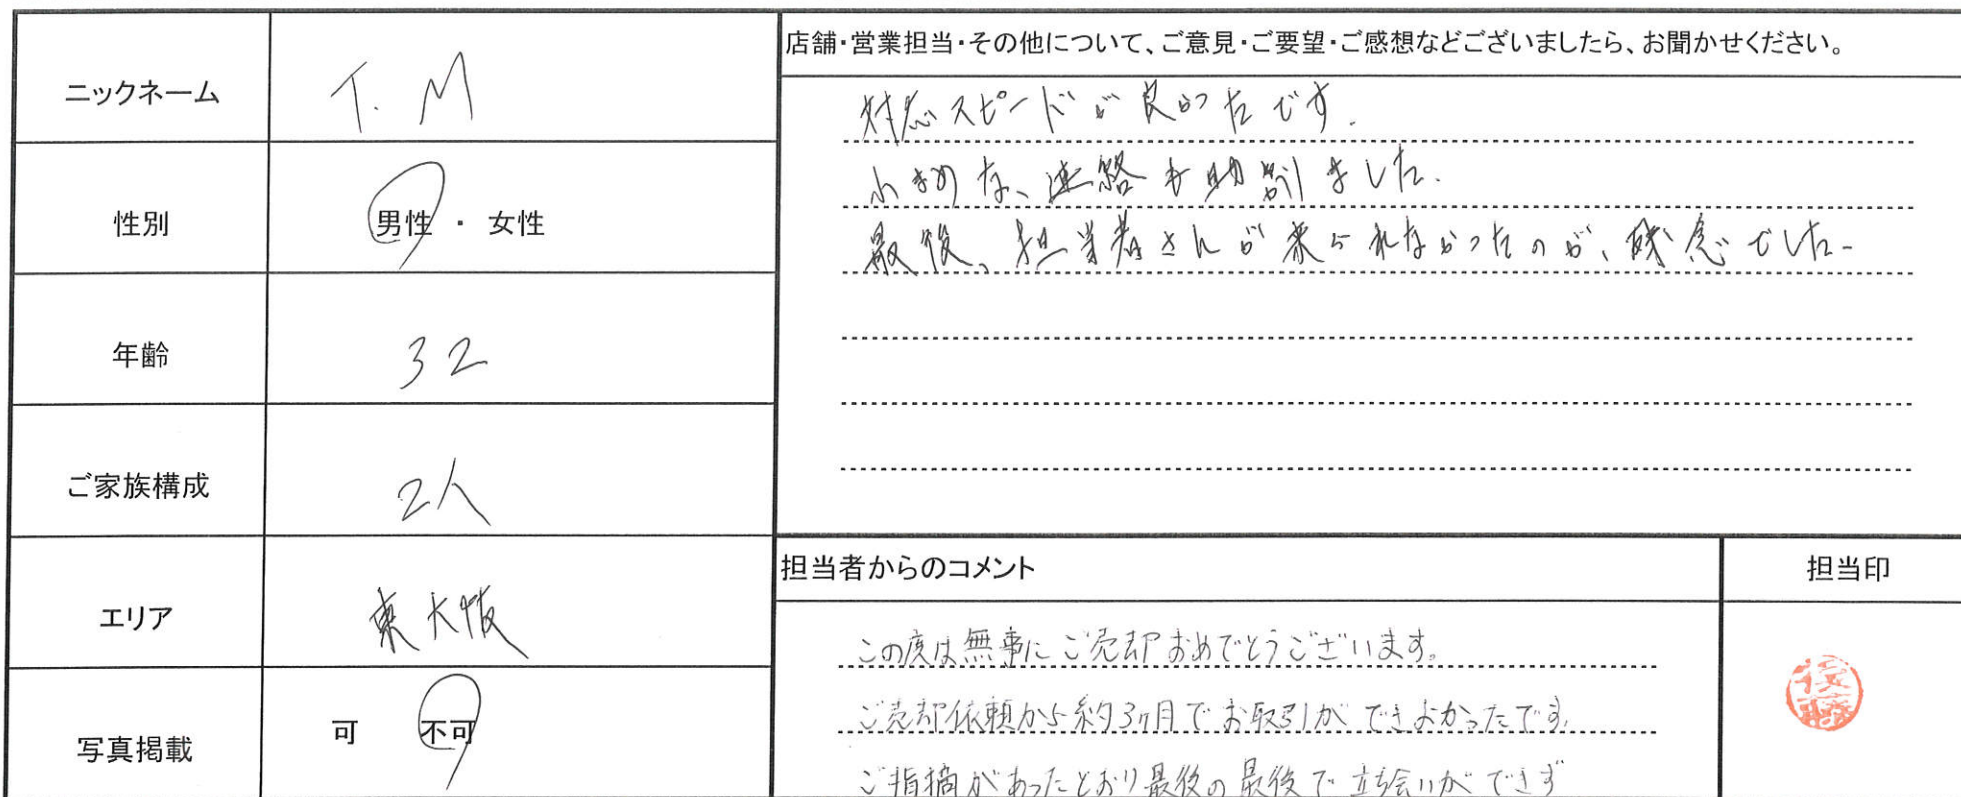 ニックネーム
T.M
性別
男性 ・ 女性
年齢
32
ご家族構成
2人
エリア
東大阪
写真掲載
可 不可
店舗・営業担当・その他について、ご意見・ご要望・ご感想などございましたら、お聞かせください。
対応スピードが良かったです.
小まめな、連絡も助かりました.
最後、担当者さんが来られなかったのが、残念でした.
担当者からのコメント
この度は無事にご売却おめでとうございます。
ご売却依頼から約3ヶ月でお取引ができよかったです。
ご指摘があったとおり最後の最後で立ち会いができず
担当印
後藤